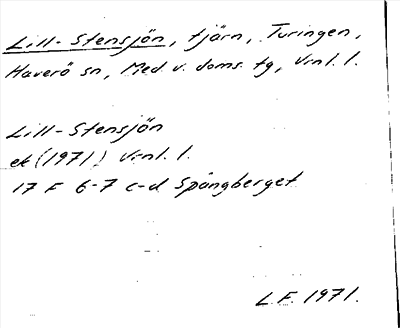 Lill-Stensjön, tjärn, Turingen,
Haverö sn, Med. v. doms. tg, Vrnl. l.
Lill-Stensjön
ek (1971) Vrnl. l.
17 F 6-7 c-d Spångberget
L.F. 1971.